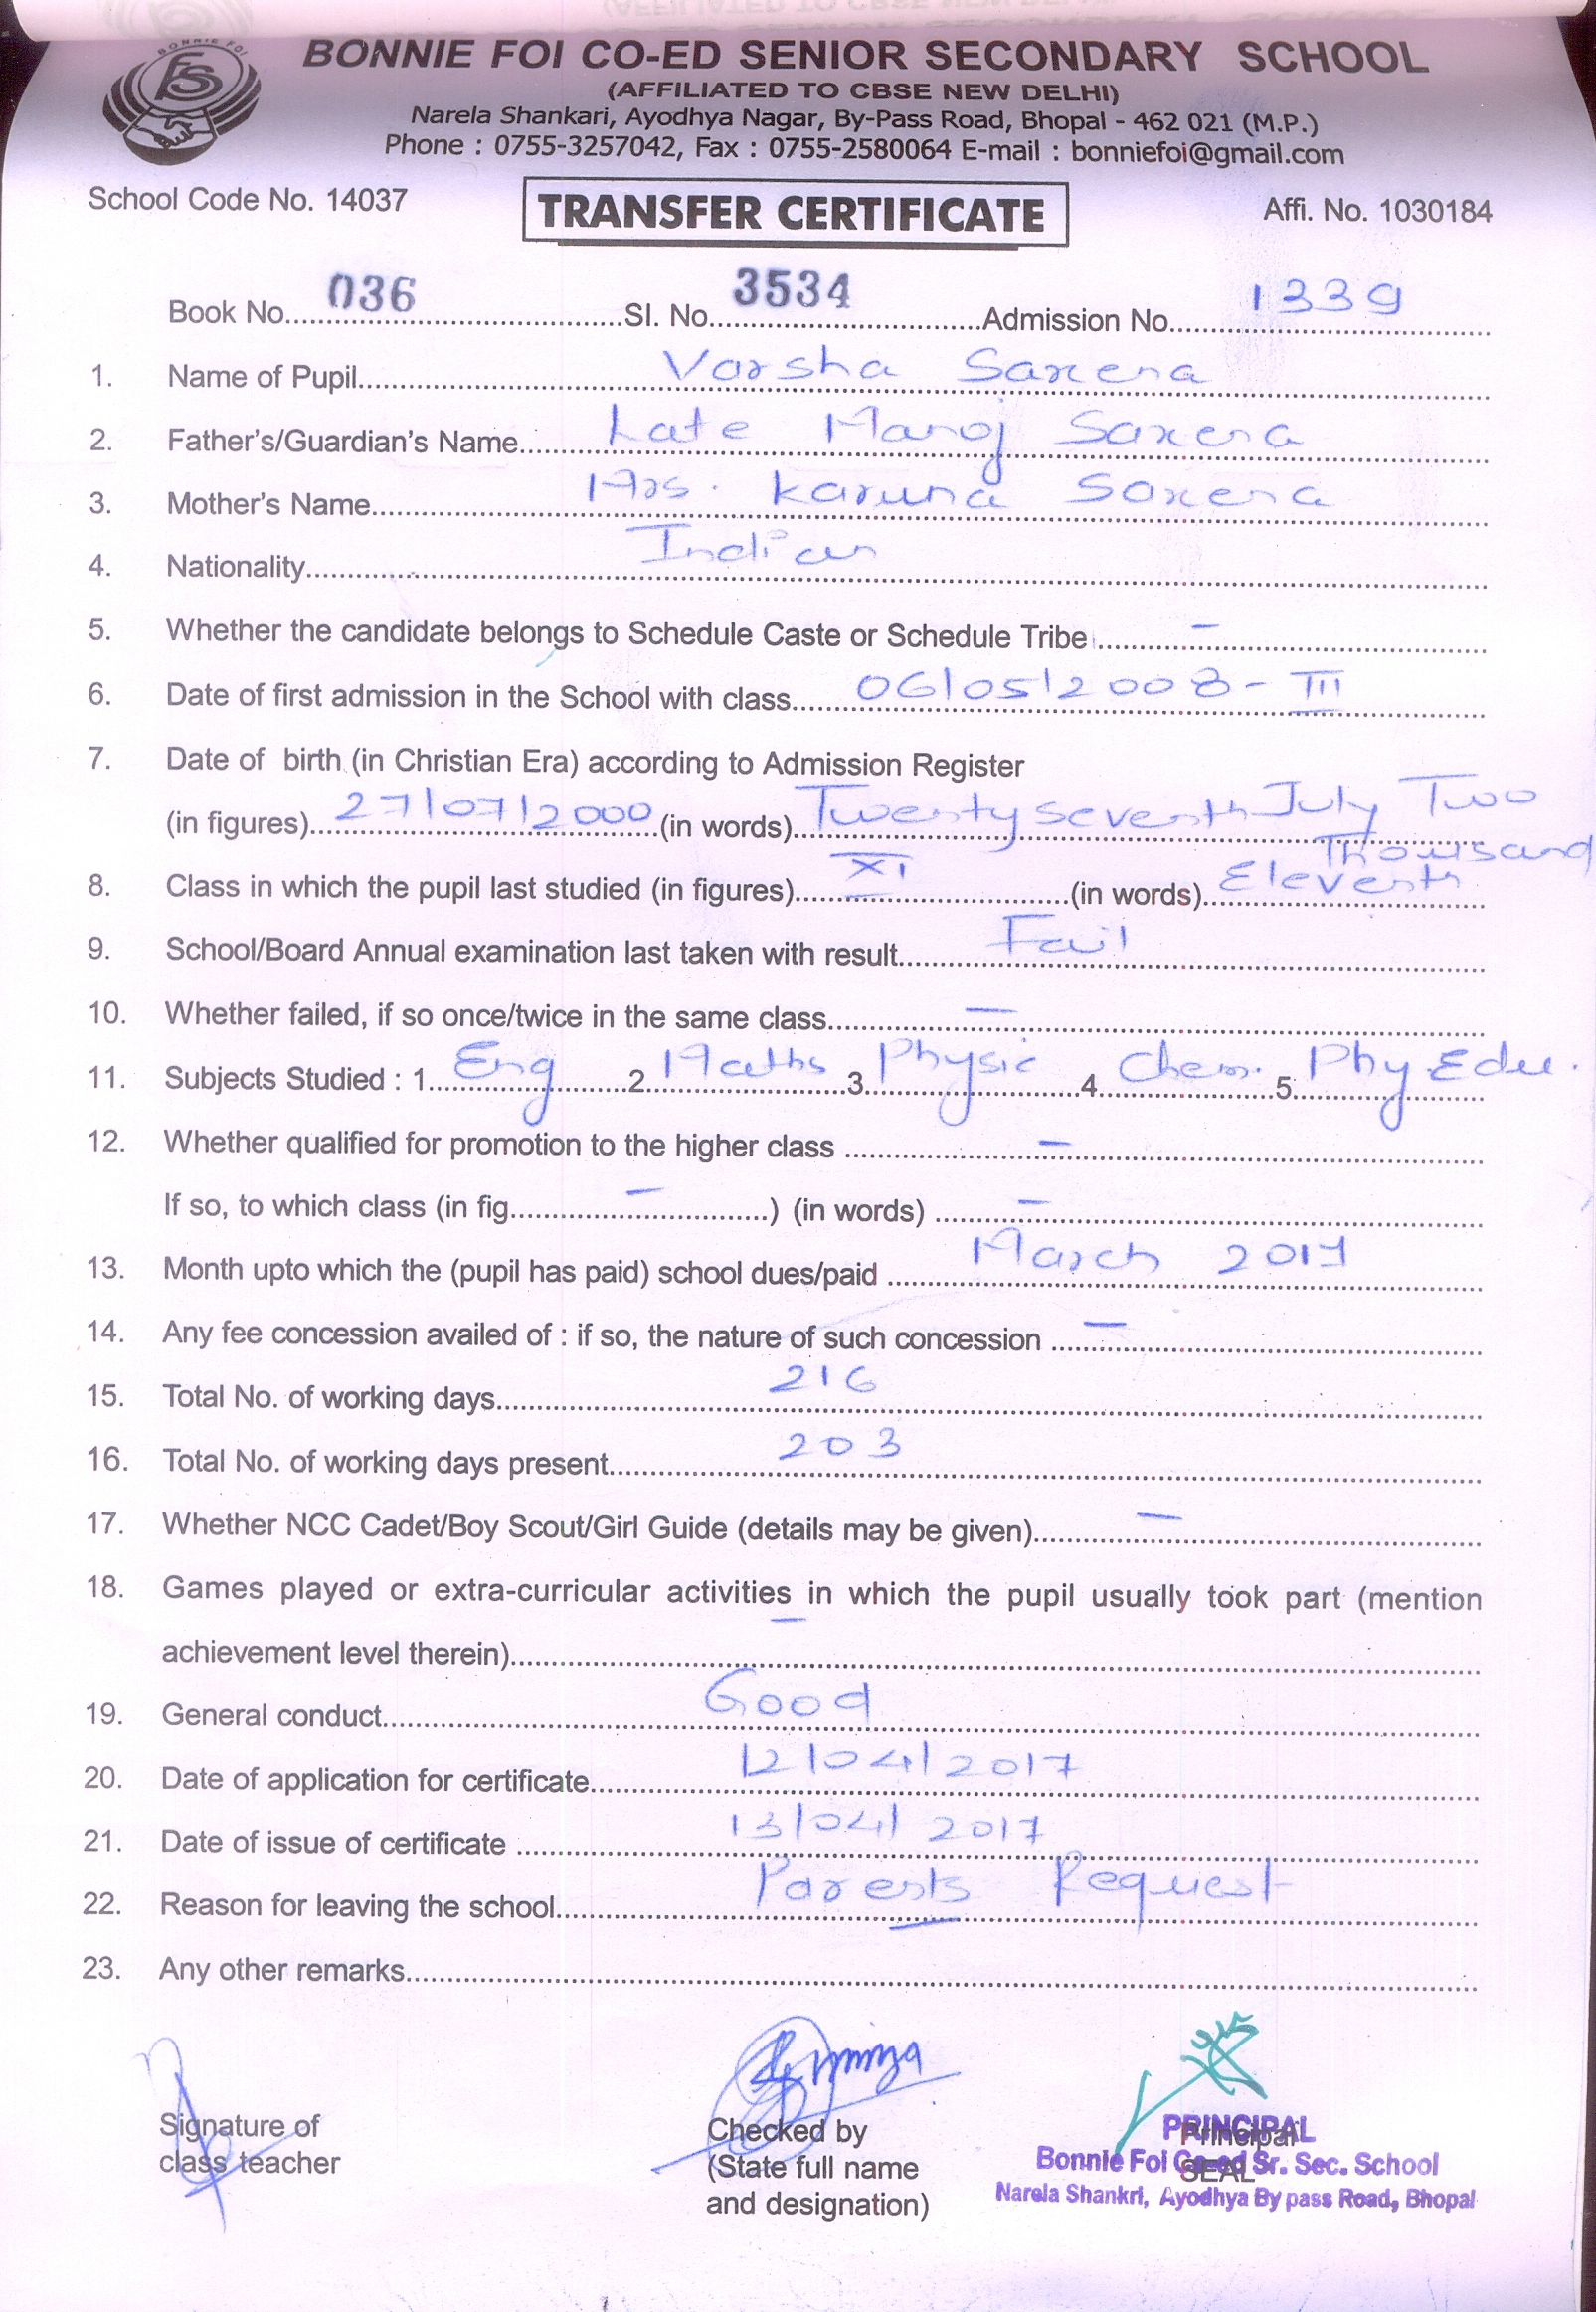 BONNIE FOI CO-ED SENIOR SECONDARY SCHOOL
(AFFILIATED TO CBSE NEW DELHI)
Narela Shankari, Ayodhya Nagar, By-Pass Road, Bhopal - 462 021 (M.P.)
Phone : 0755-3257042, Fax : 0755-2580064 E-mail : bonniefoi@gmail.com
School Code No. 14037 TRANSFER CERTIFICATE Affi. No. 1030184
Book No. 036 Sl. No. 3534 Admission No. 1339
1. Name of Pupil Varsha Saxena
2. Father's/Guardian's Name Late Manoj Saxena
3. Mother's Name Mrs. Karuna Saxena
4. Nationality Indian
5. Whether the candidate belongs to Schedule Caste or Schedule Tribe –
6. Date of first admission in the School with class 06/05/2008 - III
7. Date of birth (in Christian Era) according to Admission Register
(in figures) 27/07/2000 (in words) Twenty seventh July Two
Thousand
8. Class in which the pupil last studied (in figures) XI (in words) Eleventh
9. School/Board Annual examination last taken with result Fail
10. Whether failed, if so once/twice in the same class —
11. Subjects Studied : 1. Eng 2. Maths 3. Physic 4. Chem. 5. Phy. Edu.
12. Whether qualified for promotion to the higher class –
If so, to which class (in fig. – ) (in words) –
13. Month upto which the (pupil has paid) school dues/paid March 2017
14. Any fee concession availed of : if so, the nature of such concession —
15. Total No. of working days 216
16. Total No. of working days present 203
17. Whether NCC Cadet/Boy Scout/Girl Guide (details may be given) —
18. Games played or extra-curricular activities in which the pupil usually took part (mention
achievement level therein) –
19. General conduct Good
20. Date of application for certificate 12/04/2017
21. Date of issue of certificate 13/04/2017
22. Reason for leaving the school Parents Request
23. Any other remarks
Signature of
class teacher
Checked by
(State full name
and designation)
Principal
SEAL
PRINCIPAL
Bonnie Foi Co-ed Sr. Sec. School
Narela Shankri, Ayodhya By pass Road, Bhopal